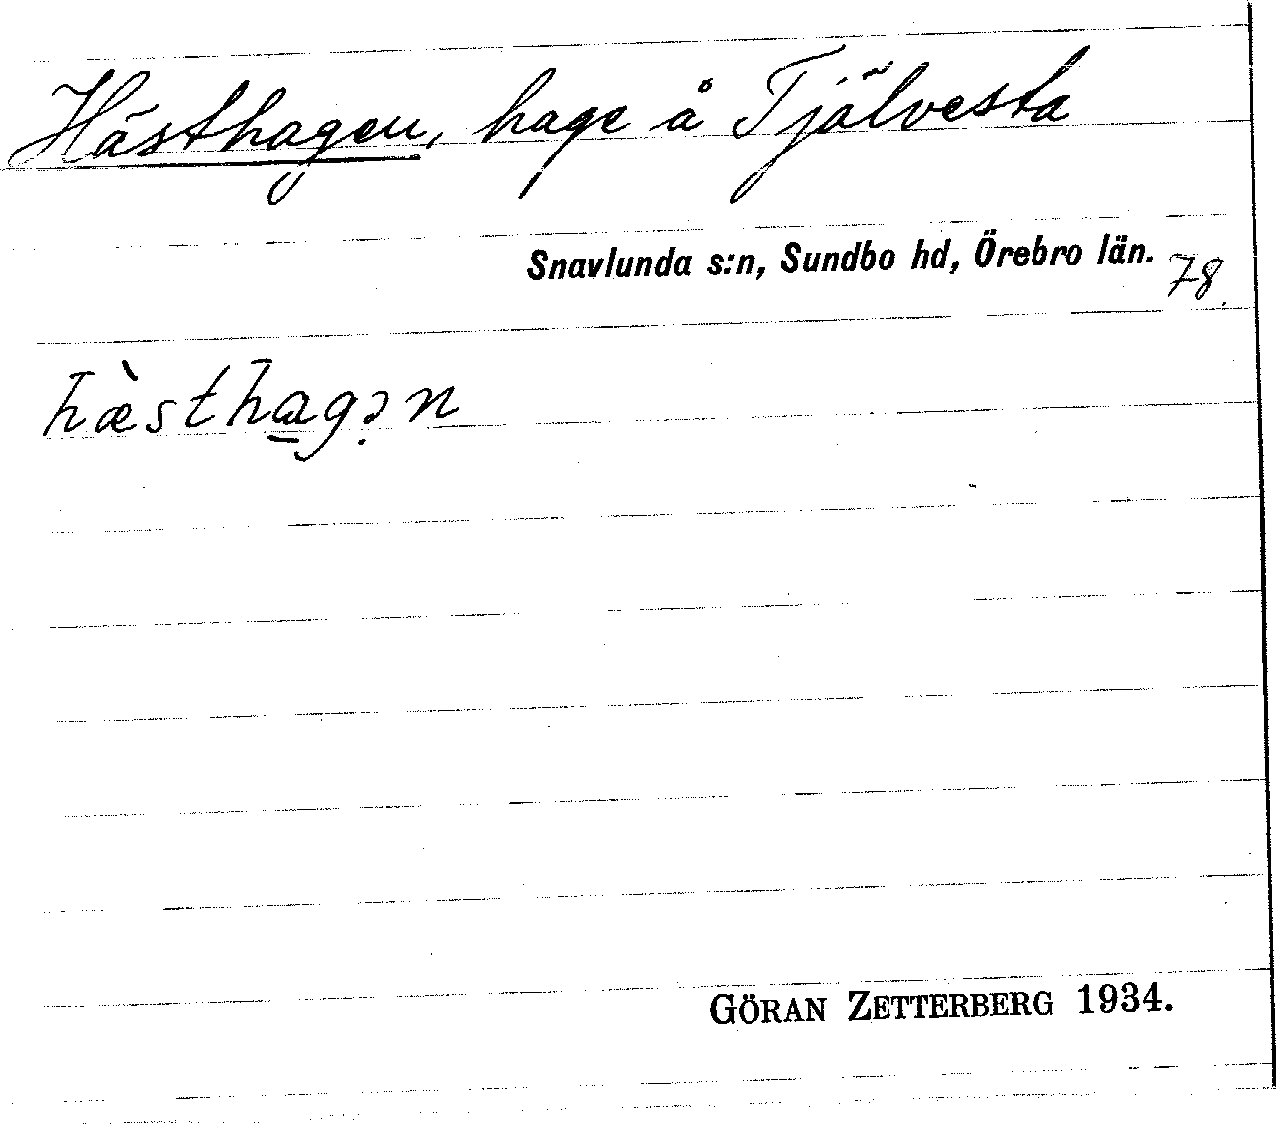 Hästhagen, hage å Tjälvesta
Snavlunda s:n, Sundbo hd, Örebro län. 78.
hæ̀stha̲gə̣n
GÖRAN ZETTERBERG 1934.